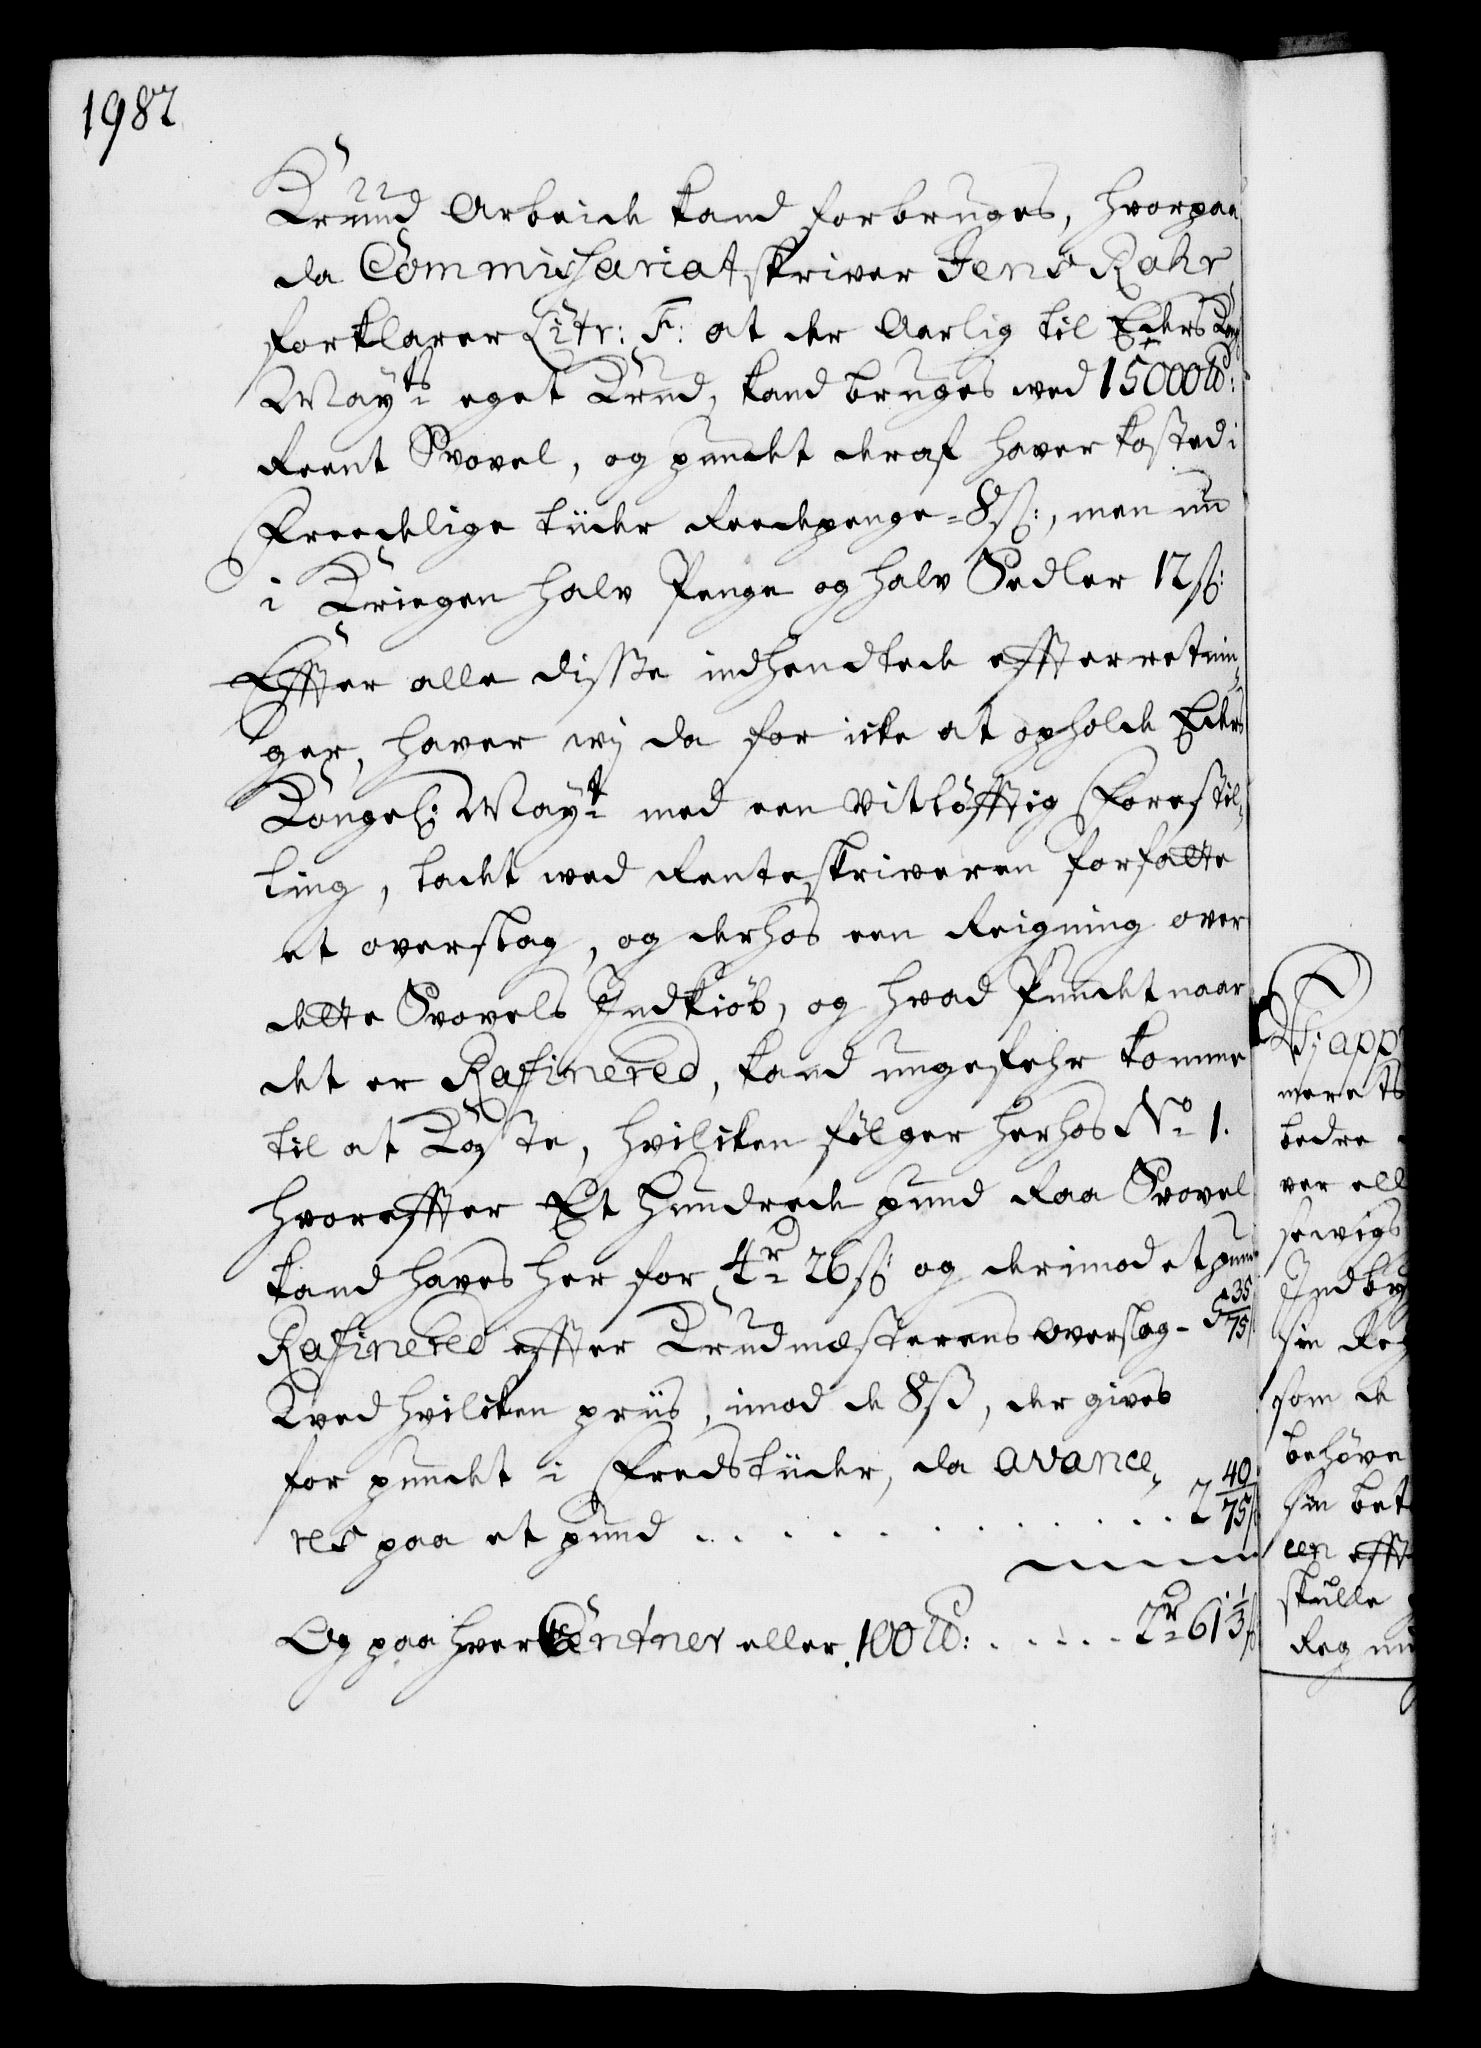 1982
Krund Arbeide kand forbruges, hvorpaa
da Commissariatskriver Jens Rohr
forklarer Litr: F: at der Aarlig til Eders Kong
Mayts eget Krud, kand bruges ved 15000 ℔:
Reent Svovel, og pundet deraf haver kosted i
Freedelige tiider Reedepenge = 8 ß:, men nu
i Kriegen halv Penge og halv Sedler 12 ß:
Effter alle disse indhendtede effterretnin¬
ger, haver wj da for icke at opholde Eders
Kongel: Mayt med een vitløfftig Forestil¬
ling, ladet ved Renteskriveren forfatte
et overslag, og derhos een Reigning over
dette Svovels Indkiøb, og hvad Pundet naar
det er Rafinered, kand ungefehr komme
til at Koste, hvilcken følger herhos No 1.
hvoreffter Et Hundrede pund Raa Svovel
kand haves her for 4 rd 26 ß: og derimod et pund
Rafinered effter Krudmesterens overslag - 5 35/75 ß
Ved hvilcken priis, imod de 8 ß, der gives
for pundet i Fredstiider, da avance¬
res paa et pund . . . . . . . . . . . . 2 40/75 ß
Og paa hver Centner eller 100 ℔: . . . . . . 2 rd 61 1/3 ß
W: app
merets
bedre
ver ell
sewigs
Indby
sin Reg
som de
behøve
sin bet
een efft
skulle
Reg nu